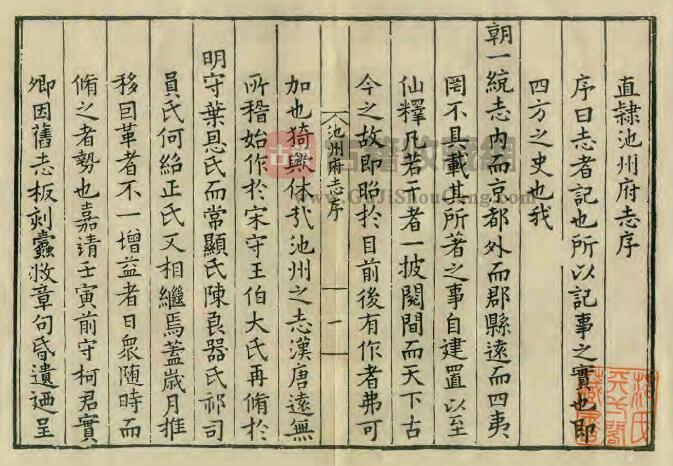 直隸池州府志序
序曰志者記也所以記事之實也即
四方之史也我
朝一統志内而京都外而郡縣遠而四夷
罔不具載其所著之事自建置以至
仙釋凡若干者一披閱間而天下古
今之故即昭於目前後有作者弗可
池州府志序
一
加也猗歟休㢤池州之志漢唐遠無
所稽始作於宋守王伯大氏再脩於
明守葉恩氏而常顯氏陳良器氏祁司
員氏何紹正氏又相繼焉蓋歲月推
移因革者不一增益者日衆随時而
脩之者勢也嘉靖壬寅前守柯君實
卿因舊志板刻蠹敚章句昏遺廼呈
范氏天一閣藏書
古籍收藏網
GuJiShouCang.com